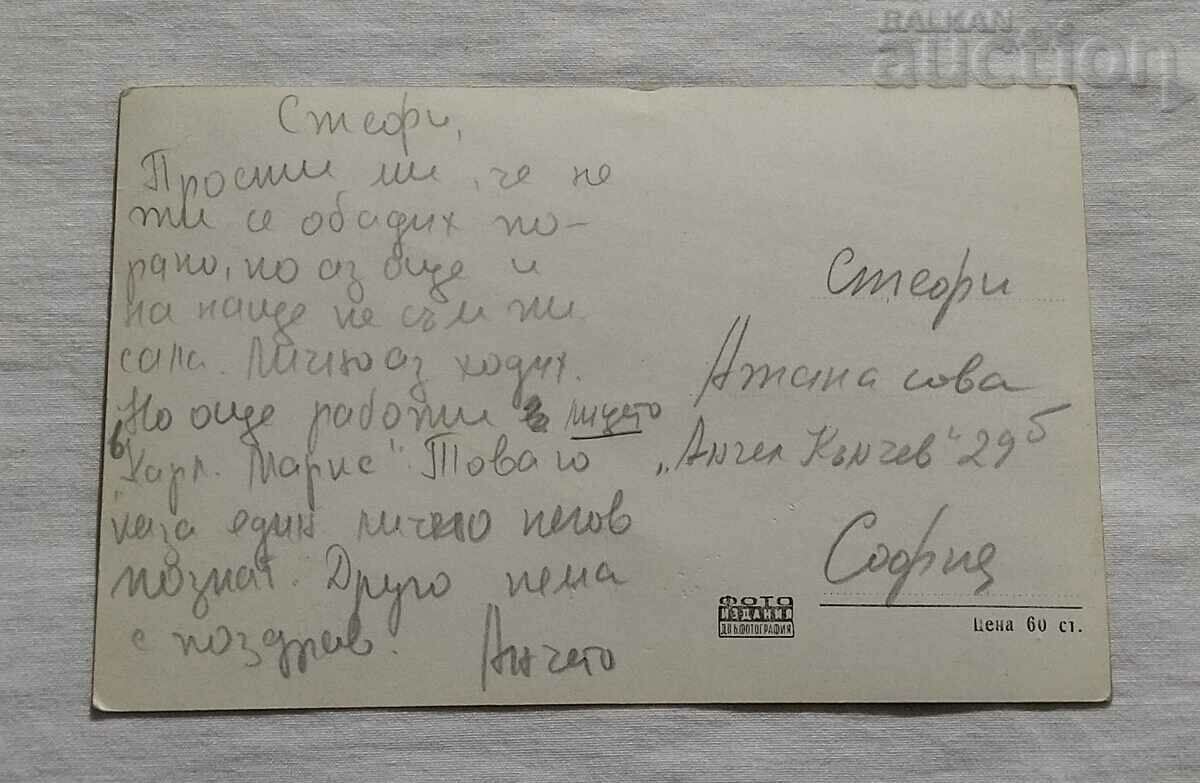 BALKAN
auction
Стефи,
Прости ми, че не
ти се обадих по-
рано, но аз още и
на наще не съм пи
сала. Лично аз ходих.
Но още работи лицето
в
"Карл. Маркс". Това го
каза един лично негов
познат. Друго нема
с поздрав.
Анчето
Стефи
Атанасова
"Ангел Кънчев" 29б
София
ФОТО
ИЗДАНИЯ
ДП БЪЛ. ФОТОГРАФИЯ
Цена 60 ст.